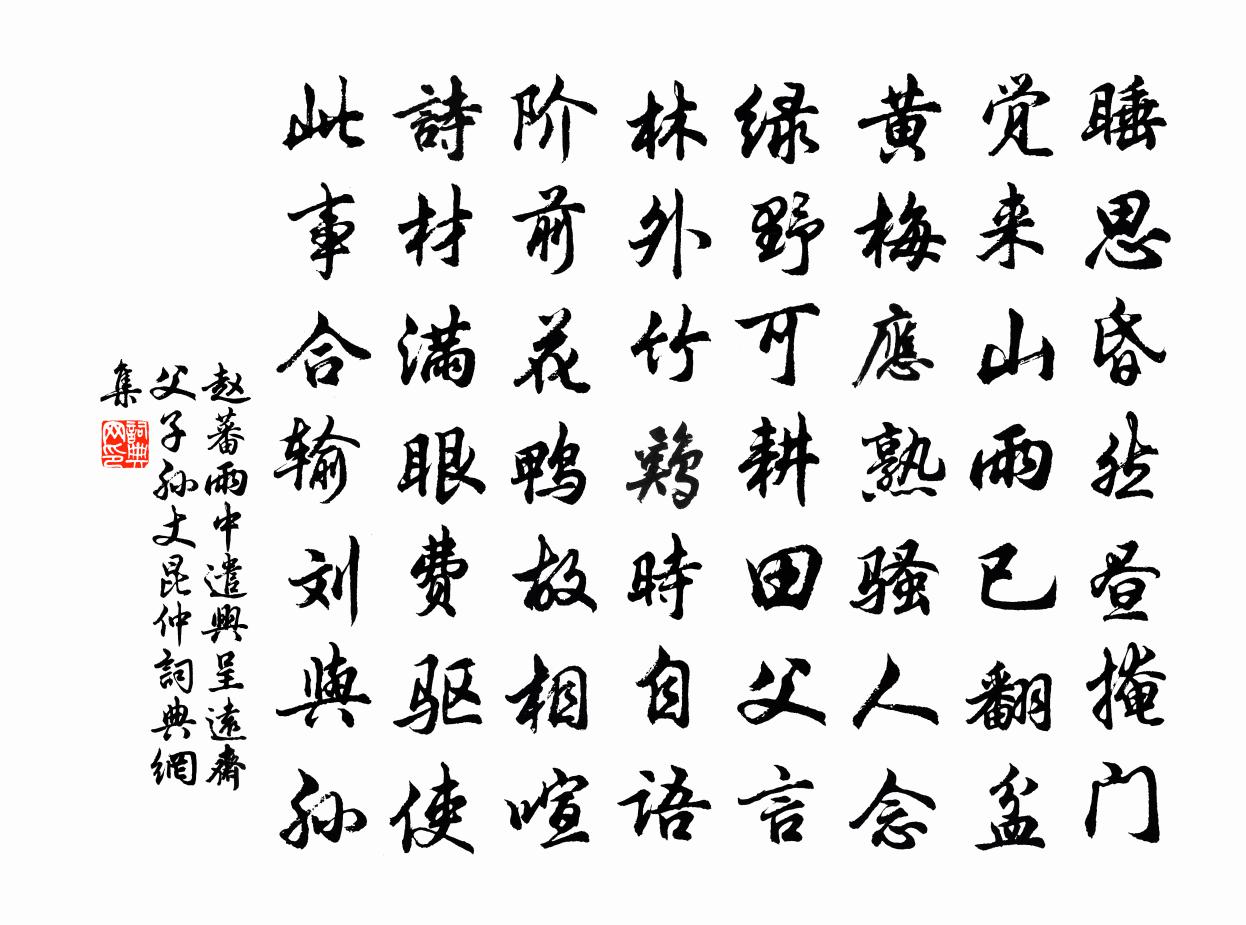 睡思昏然昼掩门
觉来山雨已翻盆
黄梅應熟骚人念
绿野可耕田父言
林外竹鷄時自语
阶前花鸭故相喧
詩材满眼费驱使
此事合输刘與孙
赵蕃雨中遣興呈遠齋
父子孙丈昆仲詞典網
集
詞典
网印